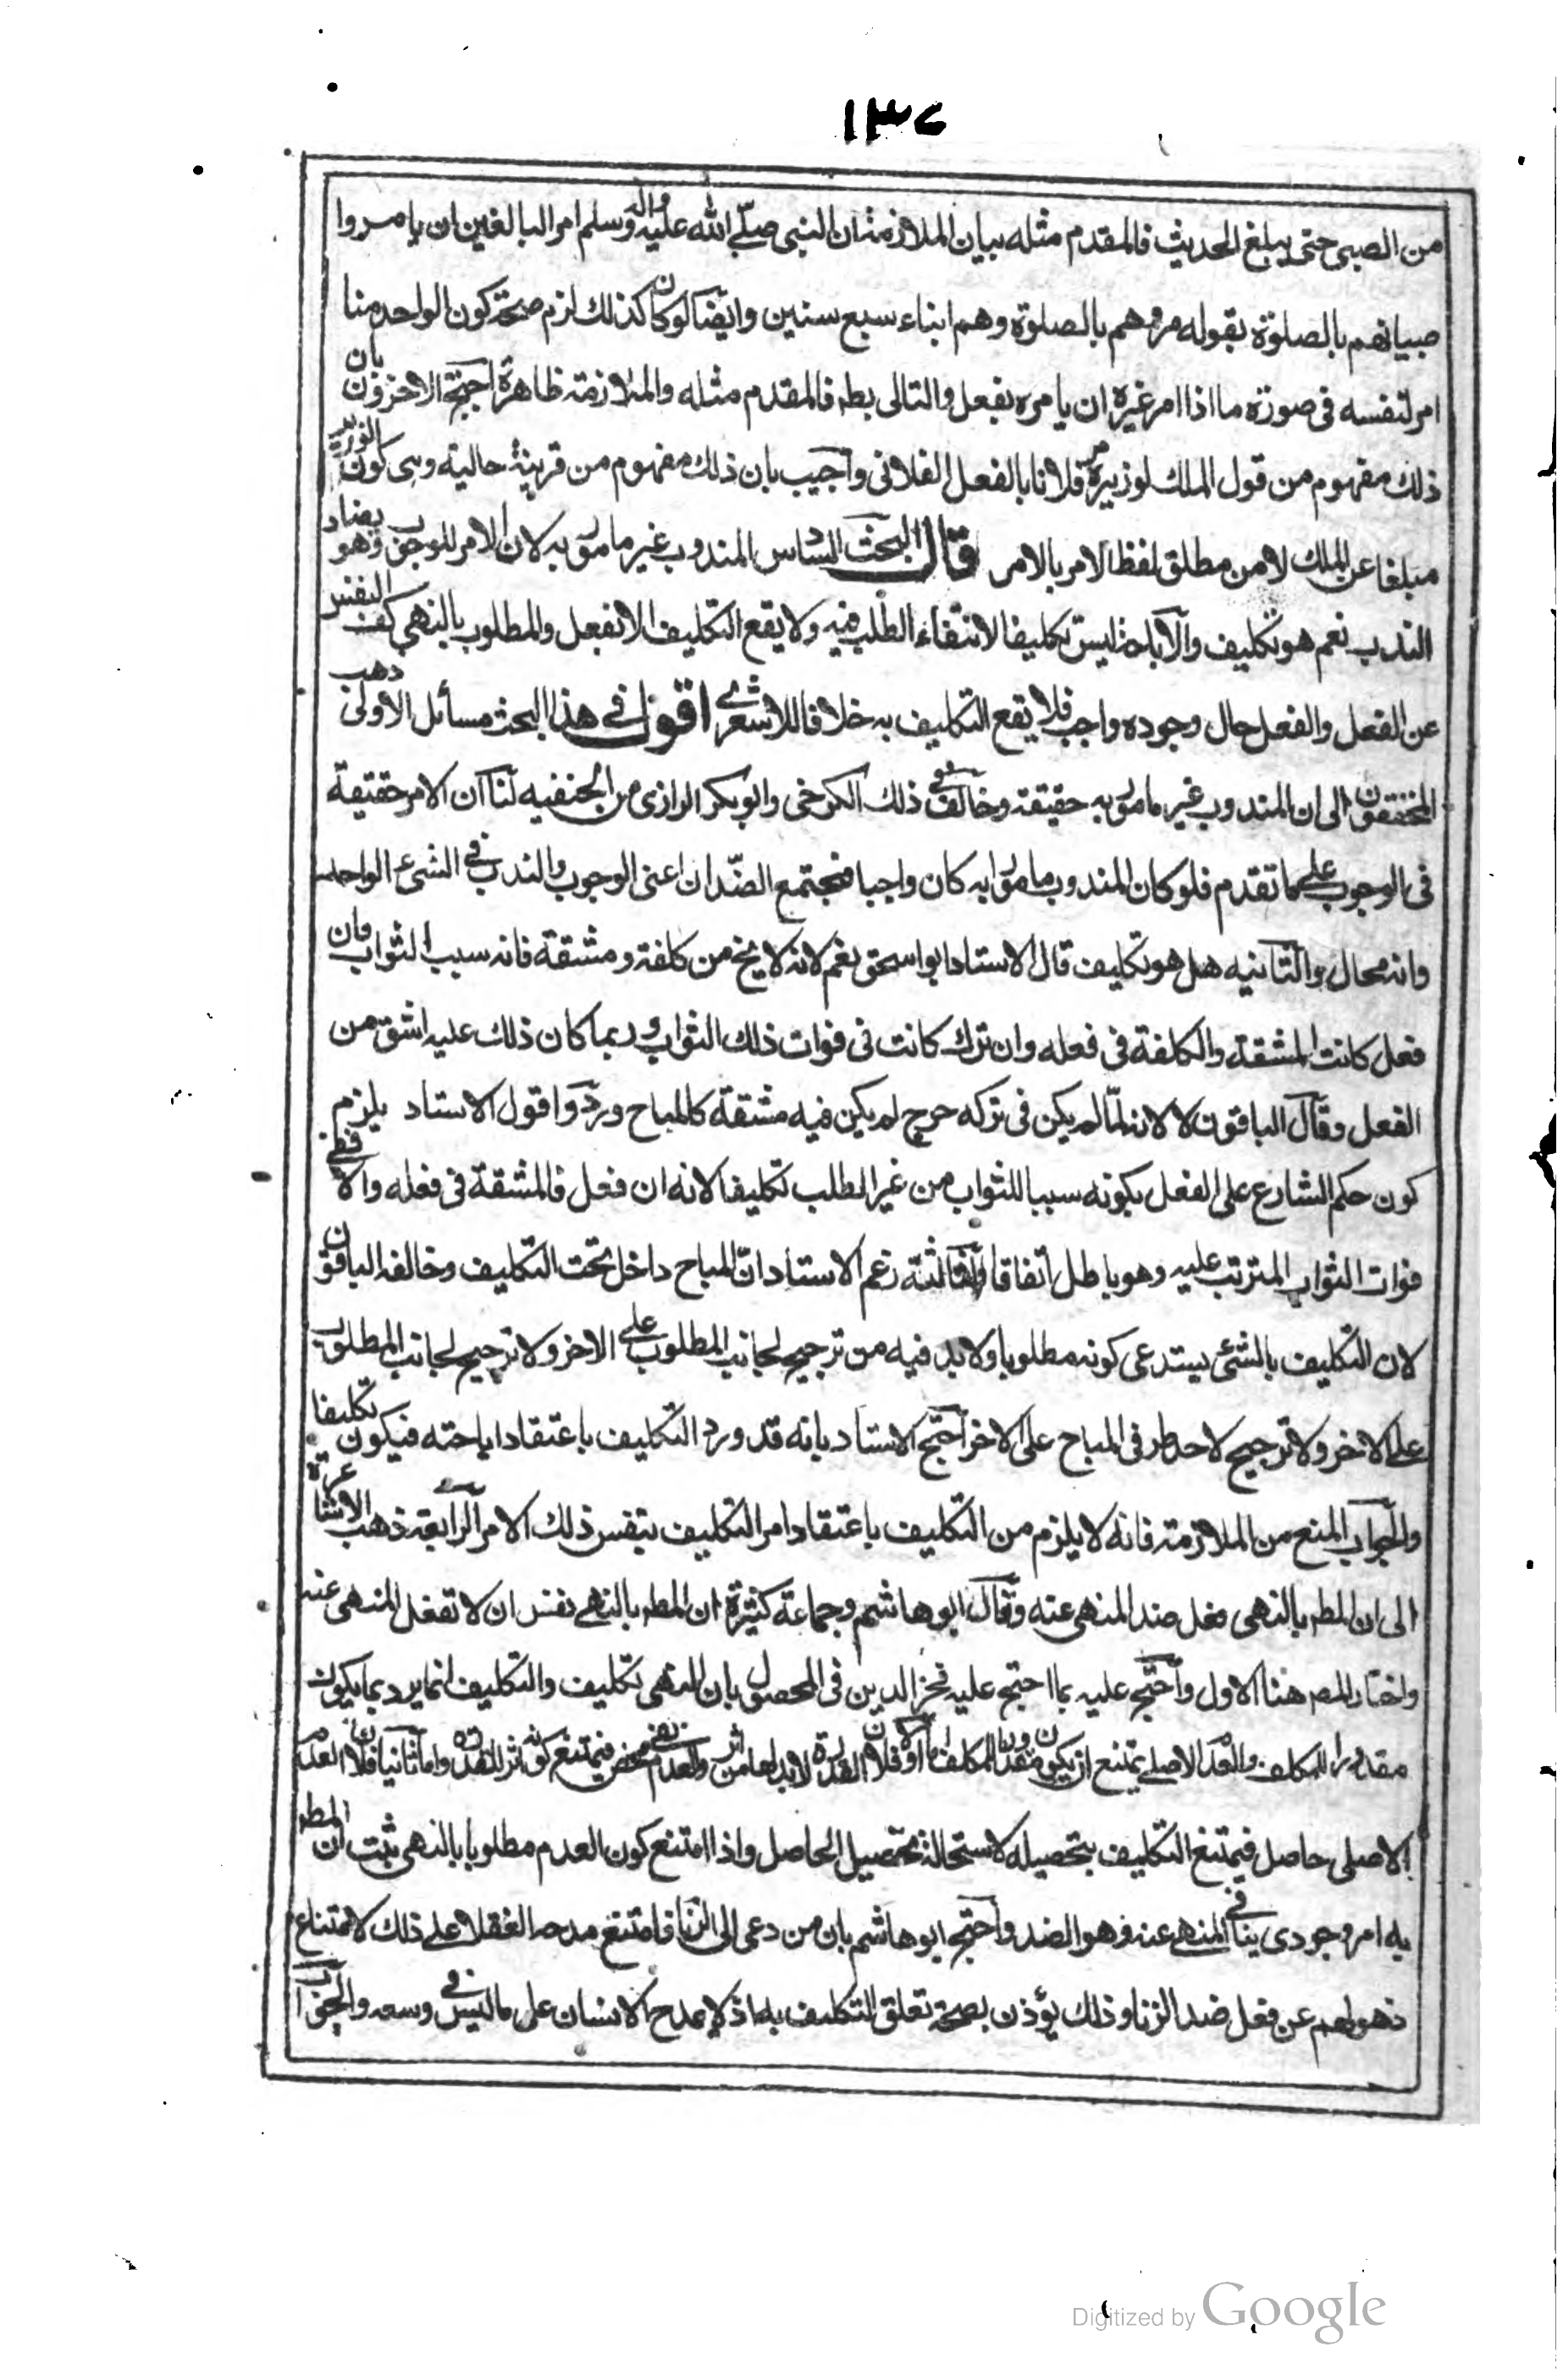 ١٣٧
من الصبى حتى يبلغ الحديث فالمقدم مثله بيان الملازمة ان النبى صلّى الله عليه واله وسلم امر البالغين ان يامروا
صبيانهم بالصلوة بقوله مروهم بالصلوة وهم ابناء سبع سنين وايضا لو كان كذلك لزم صحة كون الواحد منا
امر لنفسه فى صورة ما اذا امر غيره ان يامره بفعل والتالى بط فالمقدم مثله والملازمة ظاهرة احتج الاخرون بان
ذلك مفهوم من قول الملك لوزيره مر فلانا بالفعل الفلانى واجيب بان ذلك مفهوم من قرينة حالية وهى كون الوزير
مبلغا عن الملك لا من مطلق لفظ الامر بالامر قال البحث السادس المندوب غير مامور به لان الامر للوجوب وهو يضاد
الندب نعم هو تكليف والاباحة ليست تكليفا لانتفاء الطلب فيه ولا يقع التكليف الا بفعل والمطلوب بالنهى كف النفس
عن الفعل والفعل حال وجوده واجب فلا يقع التكليف به خلافا للاشعرى اقول فى هذا البحث مسائل الاولى ذهب
المحققون الى ان المندوب غير مامور به حقيقة وخالف فى ذلك الكرخى وابو بكر الرازى من الحنفيه لنا ان الامر حقيقة
فى الوجوب على ما تقدم فلو كان المندوب مامورا به كان واجبا فيجتمع الضدّان اعنى الوجوب والندب فى الشىء الواحد
وانه محال والثانيه هل هو تكليف قال الاستاد ابو اسحق نعم لانه لا يخ من كلفة ومشقة فانه سبب الثواب فان
فعل كانت المشقة والكلفة فى فعله وان ترك كانت فى فوات ذلك الثواب وربما كان ذلك عليه اشق من
الفعل وقال الباقون لا لانه لمّا لم يكن فى تركه حرج لم يكن فيه مشقة كالمباح وردوا قول الاستاد يلزم
كون حكم الشارع على الفعل بكونه سببا للثواب من غير الطلب تكليفا لانه ان فعل فالمشقة فى فعله والا ففى
فوات الثواب المترتب عليه وهو باطل اتفاقا والثالثة زعم الاستاد انّ المباح داخل تحت التكليف وخالفه الباقون
لان التكليف بالشئ يستدعى كونه مطلوبا ولا بد فيه من ترجيح لجانب المطلوب على الاخر ولا ترجيح لجانب المطلوب
على الاخر ولا ترجيح لاحد طرفى المباح على الاخر احتج الاستاد بانه قد ورد التكليف باعتقاد اباحته فيكون تكليفا
والجواب المنع من الملازمة فانه لا يلزم من التكليف باعتقاد امر التكليف بنفس ذلك الامر الرابعة ذهب الاشاعرة
الى ان المط بالنهى فعل ضد المنهى عنه وقال ابو هاشم وجماعة كثيرة ان المط بالنهى نفس ان لا تفعل المنهى عنه
واختار المص هنا الاول واحتج عليه بما احتج عليه فخر الدين فى المحصول بان النهى تكليف والتكليف انما يرد بما يكون
مقدورا للمكلف والعدم الاصلى يمتنع ان يكون مقدورا للمكلف اما اولا فلان القدرة لا بد لها من اثر والعدم نفى محض فيمتنع كونه اثرا للقدرة واما ثانيا فلان العدم
الاصلى حاصل فيمتنع التكليف بتحصيله لاستحالة تحصيل الحاصل واذا امتنع كون العدم مطلوبا بالنهى ثبت ان المط
به امر وجودى ينافى المنهى عنه وهو الضد واحتج ابو هاشم بان من دعى الى الزنا فامتنع مدحه العقلا على ذلك لامتناع
ذهولهم عن فعل ضد الزنا وذلك يؤذن بصحة تعلق التكليف به اذ لا يمدح الانسان على ما ليس فى وسعه والجواب
Digitized by Google